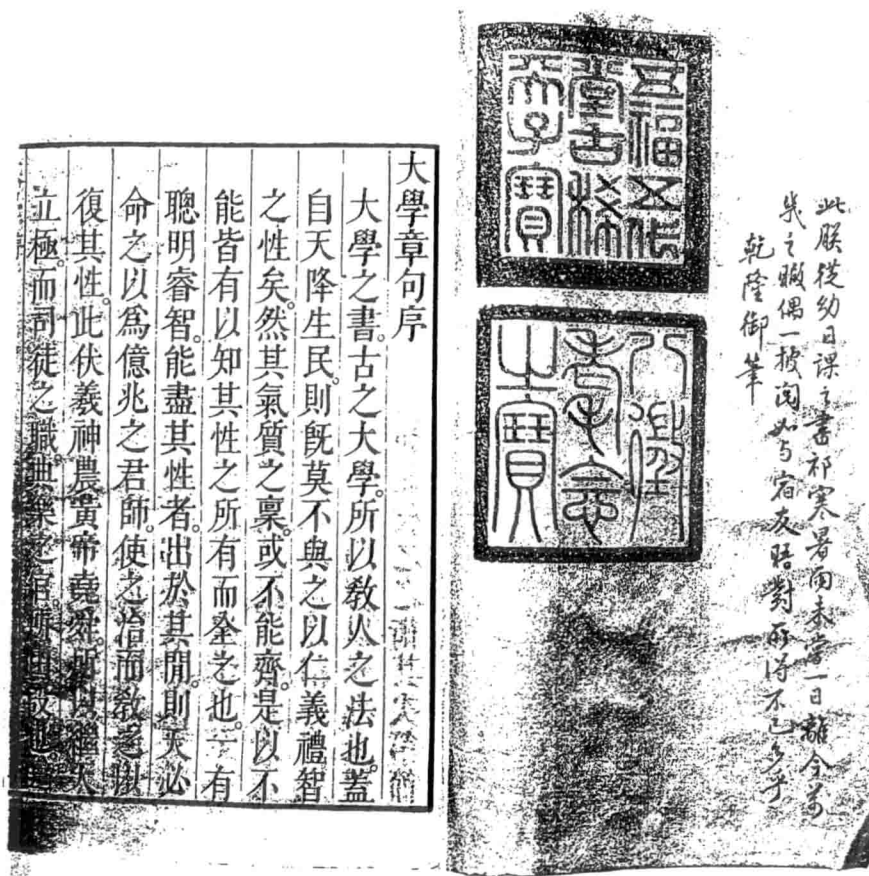 此朕從幼日課之書祁寒暑雨未嘗一日離今萬
幾之暇偶一披閱如与宿友晤對所得不已多乎
乾隆御筆
五福五代
堂古稀
天子寶
八徵
耄念
之寶
大學章句序
大學之書。古之大學。所以敎人之法也。蓋
自天降生民。則旣莫不與之以仁義禮智
之性矣。然其氣質之稟。或不能齊。是以不
能皆有以知其性之所有而全之也。一有
聰明睿智。能盡其性者。出於其閒。則天必
命之以爲億兆之君師。使之治而敎之。以
復其性。此伏羲神農黃帝堯舜。所以繼天
立極。而司徒之職。典樂之官。所由設也。